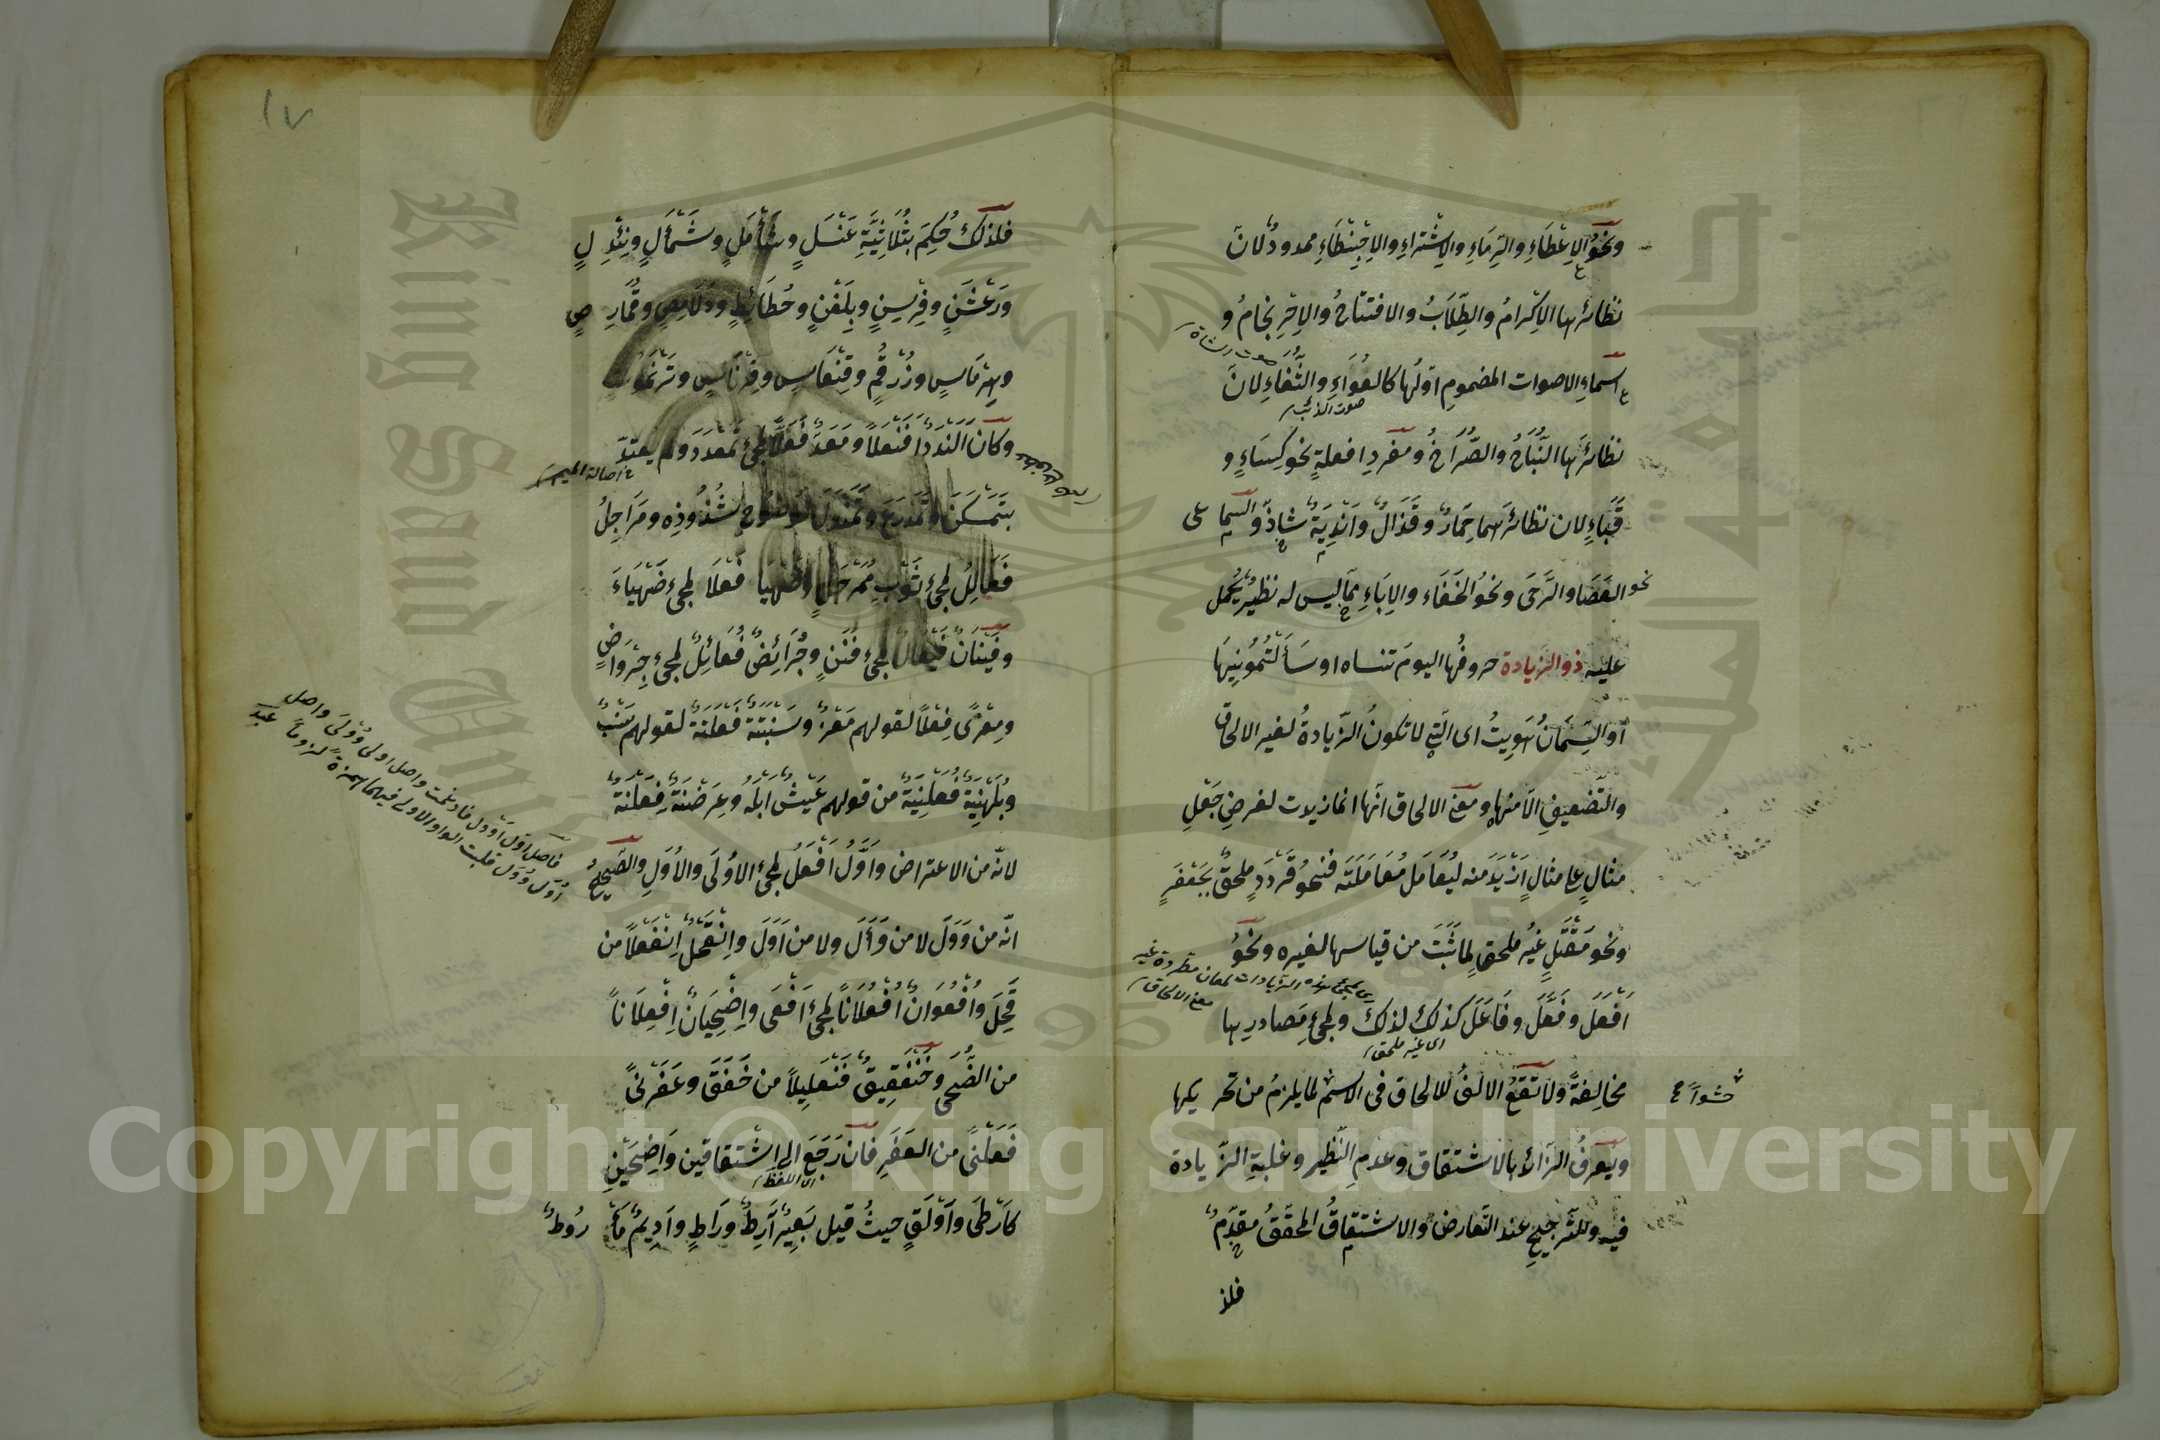 ونَحْوُ الاِعْطَاءِ والرِّمَاءِ والاِشْتِراءِ والاِحْبِنْطَاءِ ممدودٌ لانّ
نظائرَها الاِكْرامُ والطِّلَابُ والافتتاحُ والاِحْرِنجامُ و
اسماءِ الاصوات المضمومِ اوّلُها كالعُوَاءِ والثُّغَاءِ لانّ
صوت الذئب
نظائرَها النُّبَاحُ والصُّرَاخُ ومفردِ افعلةٍ نحو كِسَاءٍ و
قَبَاءٍ لان نظائرَهما حِمَارٌ وقَذَالٌ واَنْدِيَةٌ شاذٌّ والسماعى
نحو العَصَا والرَّحَى ونحوُ الخَفَاء والاِبَاءِ ممّا ليس له نظيرٌ يُحمل
عليه ذو الزيادة حروفُها اليومَ تنساه او سَاَلْتُمُونِيهَا
أو السِّمَانُ هَوِيتُ اى الّتى لا تكونُ الزّيادةُ لغير الالحاق
والتّضعيفِ الّا منها ومعنى الالحاق انّها انما زيدت لغرضِ جَعْلِ
مثالٍ على مثالٍ اَزْيَدَ منه ليُعَامَل مُعَامَلَتَه فنحوُ قَرْدَدٍ ملحقٌ بجَعْفَرٍ
ونحو مَقْتَلٍ غيرُ ملحقٍ لِما ثَبَتَ من قياسها لغيره ونحوُ
اَفْعَلَ وفَعَّلَ وفَاعَلَ كذلك لذلك ولمجئِ مَصادرِها
اى غير ملحق
مخالِفةً ولا تَقَعُ الالفُ للالحاق فى الاسم لما يلزمُ من تحريكها
حشوا
ويُعرفُ الزّائدُ بالاشتقاق وعدمِ النّظير وغلبةِ الزّيادة
فيه وللترجيحِ عند التّعارض والاشتقاقُ المحقَّقُ مقدَّمٌ
فلذ
١٧
فلذلك حُكِمَ بثُلَاثِيَّةِ عَنْسَلٍ وشَأْمَلٍ وشَمْأَلٍ ونِئْدِلٍ
ورَعْشَنٍ وفِرْسِنٍ وبِلَغْنٍ وحُطَائِطٍ ودُلَامِصٍ وقُمَارِصٍ
وهِرْمَاسٍ وزُرْقُمٍ وقِنْعَاسٍ وفِرْنَاسٍ وتَرْنَمُوتٍ
وكان اَلَنْدَدٌ اَفَنْعَلًا ومَعَدٌّ فَعَلًّا لمجئِ تَمَعْدَدَ ولم يعتدّ
بتَمَسْكَنَ وتَمَدْرَعَ وتَمَنْدَلَ لوضوح شُذُوذِه ومَرَاجِلُ
فَعَالِلُ لمجئِ ثَوْبٍ مُمَرْجَلٍ وضَهْيَأ فَعْلَأ لمجئِ ضَهْيَاءَ
وفَيْنَانٌ فَيْعَالٌ لمجئِ فَنَنٍ وجُرَائِضٌ فُعَائِلٌ لمجئِ جِرْوَاضٍ
ومِعْزًى فِعْلًا لقولهم مَعْزٌ وسَنْبَتَةٌ فَعْلَتَةٌ لقولهم سَنْبٌ
وبُلَهْنِيَةٌ فُعَلْنِيَةٌ من قولهم عَيْشٌ اَبْلَهُ وعِرَضْنَةٌ فِعَلْنَةٌ
لانّه من الاعتراض واَوَّلُ اَفْعَلُ لمجئِ الاُولَى والاُوَلِ والصّحيحُ
انّه من وَوَلَ لا من وَأَلَ ولا من اَوَلَ واِنْقَحْلٌ اِنْفَعْلًا من
قَحِلَ واُفْعُوَانٌ اُفْعُلَانًا لمجئِ اَفْعَى واِضْحِيَانٌ اِفْعِلَانًا
من الضُّحَى وخَنْفَقِيقٌ فَنْعَلِيلًا من خَفَقَ وعَفَرْنًى
فَعَلْنًى من العَفَرِ فان رَجَعَ الى اشتقاقين واضِحَيْنِ
اى اللفظ
كاَرْطَى واَوْلَقٍ حيثُ قيل بَعِيرٌ آرِطٌ ورَاطٍ واَدِيمٌ مَأْرُوطٌ